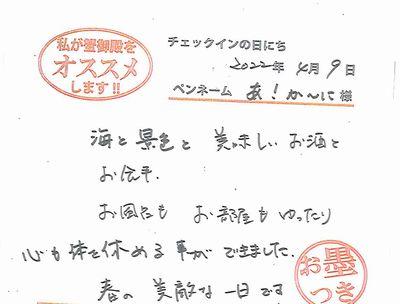 私が蟹御殿を
オススメ
します!!
チェックインの日にち
2022年 4月 9日
ペンネーム あ!か〜に 様
海と 景色と 美味しい お酒と
お食事。
お風呂も お部屋も ゆったり
心も体も休める事ができました。
春の 素敵な 一日です
お墨
つき